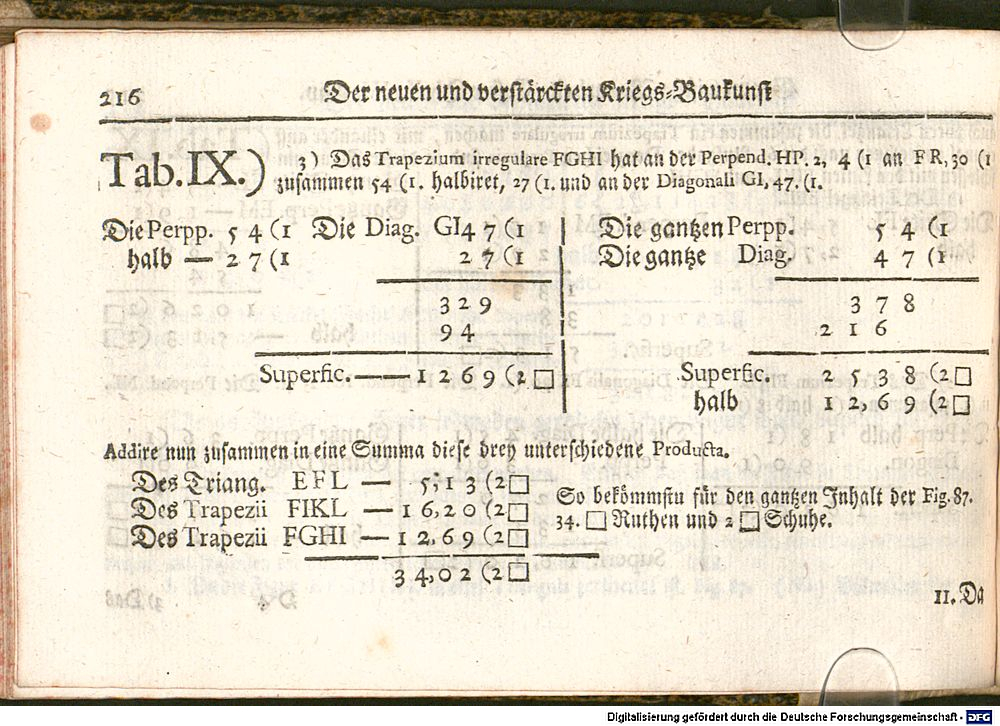 216 Der neuen und verstärckten Kriegs-Baukunst
Tab. IX.) 3) Das Trapezium irregulare FGHI hat an der Perpend. HP. 2, 4 (1 an FR, 30 (1
zusammen 54 (1. halbiret, 27 (1. und an der Diagonali GI, 47. (1.
Die Perpp. 5 4 (1 Die Diag. GI 4 7 (1
halb — 2 7 (1 2 7 (1
3 2 9
9 4
Superfic. — 1 2 6 9 (2 □
Die gantzen Perpp. 5 4 (1
Die gantze Diag. 4 7 (1
3 7 8
2 1 6
Superfic. 2 5 3 8 (2 □
halb 1 2,6 9 (2 □
Addire nun zusammen in eine Summa diese drey unterschiedene Producta.
Des Triang. EFL — 5,1 3 (2 □
Des Trapezii FIKL — 1 6,2 0 (2 □
Des Trapezii FGHI — 1 2,6 9 (2 □
3 4,0 2 (2 □
So bekömmstu für den gantzen Inhalt der Fig. 87.
34. □ Ruthen und 2 □ Schuhe.
11. Da
Digitalisierung gefördert durch die Deutsche Forschungsgemeinschaft - DFG